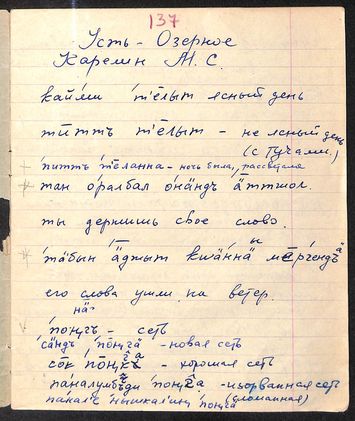 137
Усть-Озерное
Карелин М. С.
кайм̄и т'е̄лыт ясный день
тӣттъ т'е̄лыт – не ясный день
(с тучами.)
'питтъ 'т'е̄ланна – ночь была, рассвело
тан о́ралбал о́нӓндъ ӓ̄ттшол.
ты держишь свое слово.
'тӓбын 'ӓ̄джыт кwӓннӓ ме̄ргендъ
его слова ушли на ветер.
'поңгъ – сеть
'сӓндъ 'по̄ңга – новая сеть
со̄к 'по̄ңка – хорошая сеть
паналумбъ̄ди 'поңга – изорванная сеть
(сломанная)